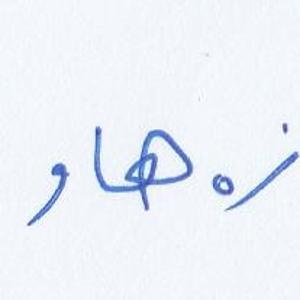 زه هاو